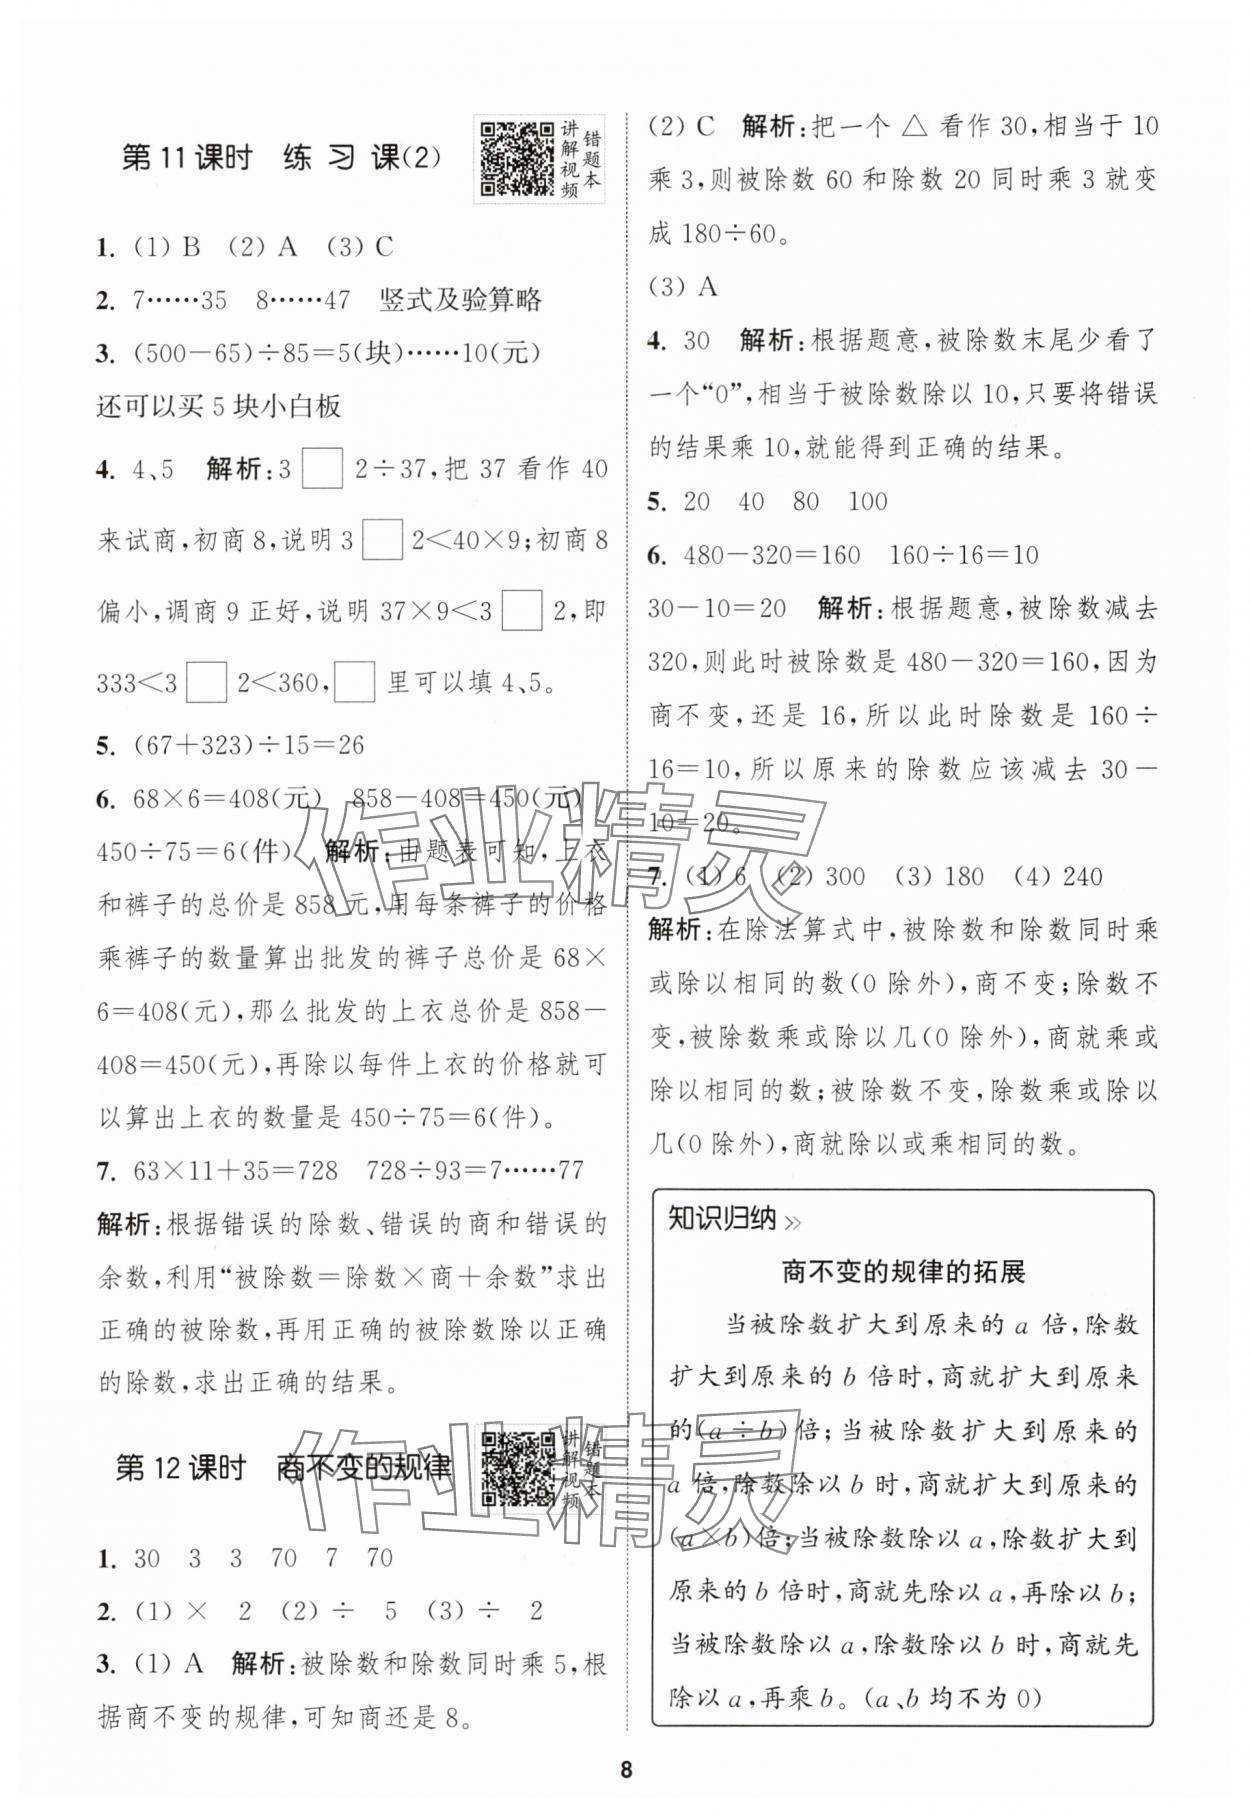 第11课时 练习课(2)
讲解视频
错题本
1. (1) B (2) A (3) C
2. 7……35 8……47 竖式及验算略
3. (500－65)÷85＝5(块)……10(元)
还可以买 5 块小白板
4. 4、5 解析:3 □ 2÷37,把 37 看作 40
来试商,初商 8,说明 3 □ 2＜40×9;初商 8
偏小,调商 9 正好,说明 37×9＜3 □ 2,即
333＜3 □ 2＜360, □ 里可以填 4、5。
5. (67＋323)÷15＝26
6. 68×6＝408(元) 858－408＝450(元)
450÷75＝6(件) 解析:由题表可知,上衣
和裤子的总价是 858 元,用每条裤子的价格
乘裤子的数量算出批发的裤子总价是 68×
6＝408(元),那么批发的上衣总价是 858－
408＝450(元),再除以每件上衣的价格就可
以算出上衣的数量是 450÷75＝6(件)。
7. 63×11＋35＝728 728÷93＝7……77
解析:根据错误的除数、错误的商和错误的
余数,利用“被除数＝除数×商＋余数”求出
正确的被除数,再用正确的被除数除以正确
的除数,求出正确的结果。
第12课时 商不变的规律
讲解视频
错题本
1. 30 3 3 70 7 70
2. (1) × 2 (2) ÷ 5 (3) ÷ 2
3. (1) A 解析:被除数和除数同时乘 5,根
据商不变的规律,可知商还是 8。
(2) C 解析:把一个 △ 看作 30,相当于 10
乘 3,则被除数 60 和除数 20 同时乘 3 就变
成 180÷60。
(3) A
4. 30 解析:根据题意,被除数末尾少看了
一个“0”,相当于被除数除以 10,只要将错误
的结果乘 10,就能得到正确的结果。
5. 20 40 80 100
6. 480－320＝160 160÷16＝10
30－10＝20 解析:根据题意,被除数减去
320,则此时被除数是 480－320＝160,因为
商不变,还是 16,所以此时除数是 160÷
16＝10,所以原来的除数应该减去 30－
10＝20。
7. (1) 6 (2) 300 (3) 180 (4) 240
解析:在除法算式中,被除数和除数同时乘
或除以相同的数(0 除外),商不变;除数不
变,被除数乘或除以几(0 除外),商就乘或
除以相同的数;被除数不变,除数乘或除以
几(0 除外),商就除以或乘相同的数。
知识归纳 »
商不变的规律的拓展
当被除数扩大到原来的 a 倍,除数
扩大到原来的 b 倍时,商就扩大到原来
的(a÷b)倍;当被除数扩大到原来的
a 倍,除数除以 b 时,商就扩大到原来的
(a×b)倍;当被除数除以 a,除数扩大到
原来的 b 倍时,商就先除以 a,再除以 b;
当被除数除以 a,除数除以 b 时,商就先
除以 a,再乘 b。(a、b 均不为 0)
作业精灵
作业精灵
8